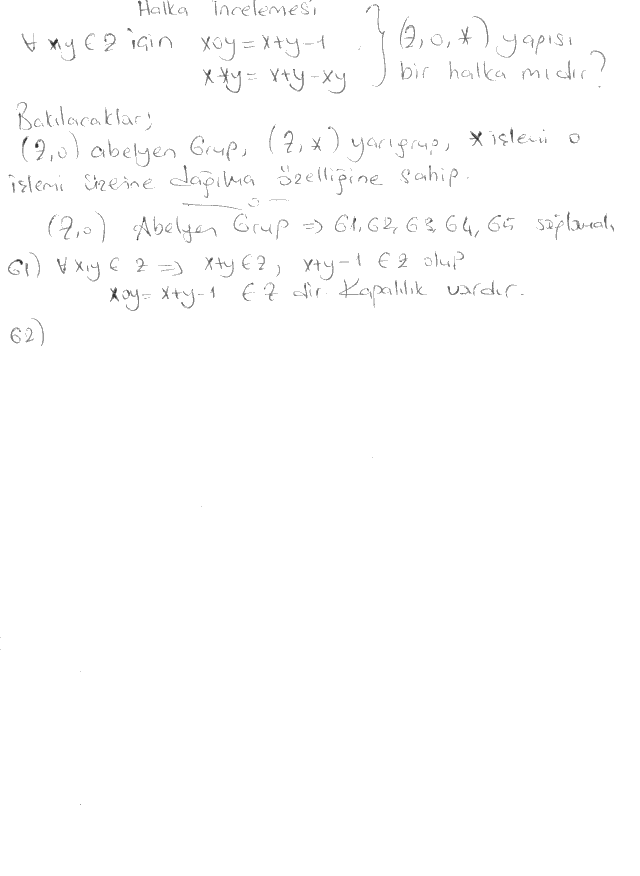 Halka İncelemesi
∀ x,y ∈ Z için x∘y = x+y-1 } (Z, ∘, *) yapısı
x*y = x+y-xy } bir halka mıdır?
Bakılacaklar;
(Z,∘) abelyen Grup, (Z,*) yarıgrup, * işlemi ∘
işlemi üzerine dağılma özelliğine sahip.
(Z,∘) Abelyen Grup ⇒ G1, G2, G3, G4, G5 sağlanmalı
G1) ∀ x,y ∈ Z ⇒ x+y ∈ Z, x+y-1 ∈ Z olup
x∘y = x+y-1 ∈ Z dir Kapalılık vardır.
G2)